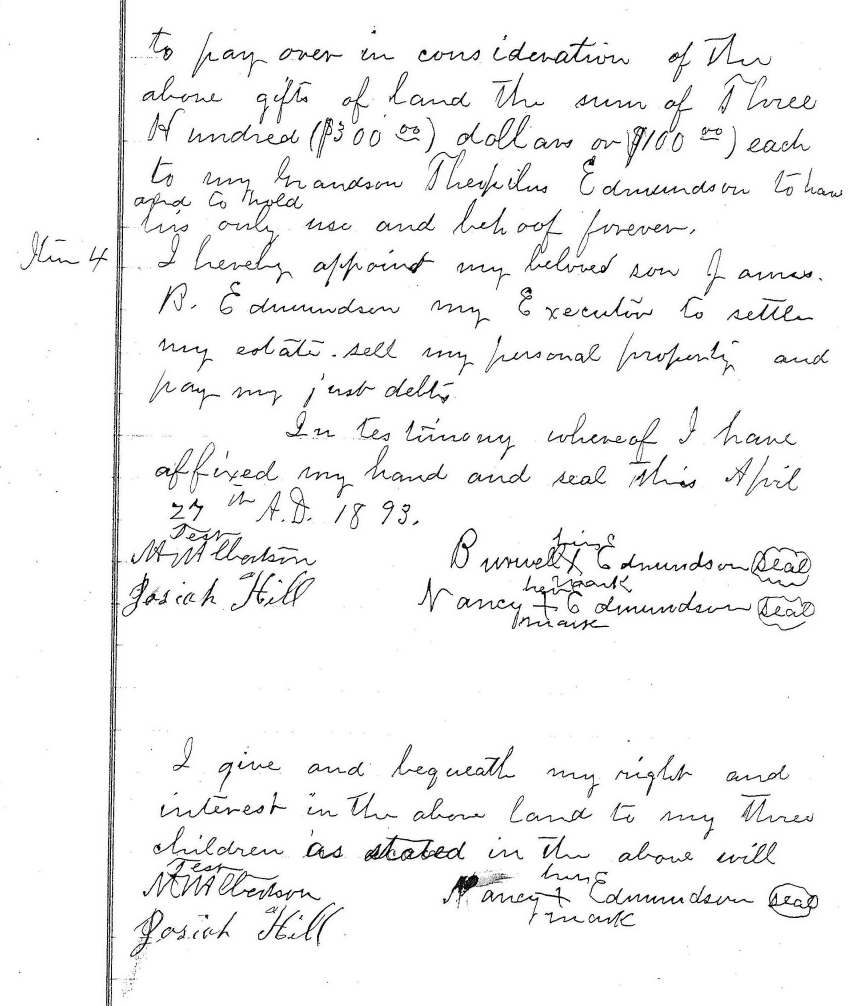 to pay over in consideration of the
above gifts of land the sum of Three
Hundred ($300 00) dollars or $100 00) each
to my Grandson Theopilus Edmundson to have
and to hold
his only use and behoof forever.
Item 4 I hereby appoint my beloved son James.
B. Edmundson my Executor to settle
my estate. sell my personal property and
pay my just debts
In testimony whereof I have
affixed my hand and seal this April
27th A.D. 1893.
Test
Albertson
Josiah Hill
his
Burwell X Edmundson seal
mark
her
Nancy + Edmundson seal
mark
I give and bequeath my right and
interest in the above land to my three
children as stated in the above will
Test
Albertson
Josiah Hill
her
Nancy + Edmundson seal
mark